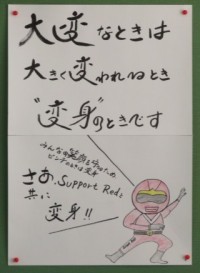 大変なときは
大きく変われるとき
"変身"のときです
みんなの笑顔を守るため
ピンチのときは変身
さあ、Support Redと
共に
変身!!